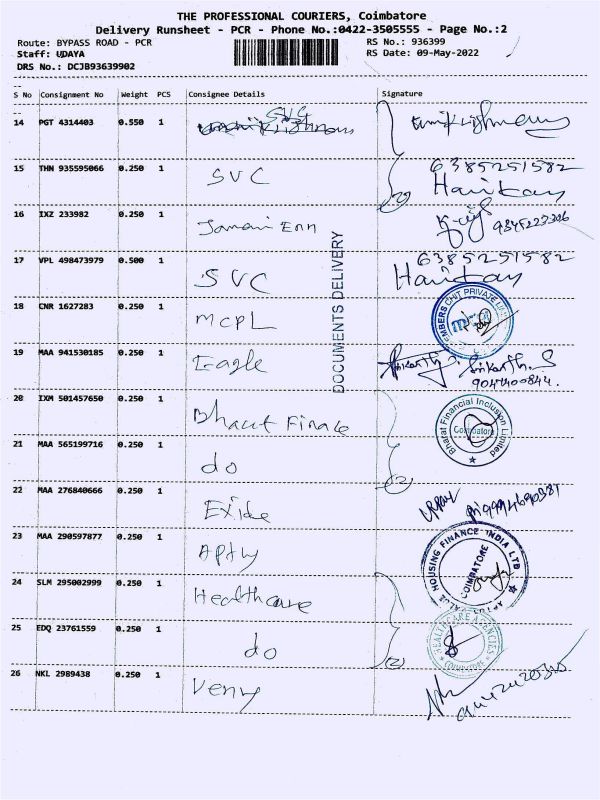 THE PROFESSIONAL COURIERS, Coimbatore
Delivery Runsheet - PCR - Phone No.:0422-3505555 - Page No.:2
Route: BYPASS ROAD - PCR
RS No.: 936399
Staff: UDAYA
RS Date: 09-May-2022
DRS No.: DCJB93639902
S No Consignment No Weight PCS Consignee Details Signature
14 PGT 4314403 0.550 1 SVC
15 THN 935595066 0.250 1 SVC 6385251582
Harikar
16 IXZ 233982 0.250 1 Enn
17 VPL 498473979 0.500 1 SVC 6385251582
Harikar
DOCUMENTS DELIVERY
18 CNR 1627283 0.250 1 MCPL
EMBERS CHIT PRIVATE
19 MAA 941530185 0.250 1 Eagle Srikanth. S
9047400844.
20 IXM 501457650 0.250 1 Bharat Finance
Bharat Financial Inclusion Limited
Coimbatore
21 MAA 565199716 0.250 1 do
(2)
22 MAA 276840666 0.250 1 Exide
23 MAA 290597877 0.250 1 Aptus
APTUS VALUE HOUSING FINANCE INDIA LTD
COIMBATORE
24 SLM 295002999 0.250 1 Healthcare
25 EDQ 23761559 0.250 1 do
HEALTHCARE AGENCIES
(2)
26 NKL 2989438 0.250 1